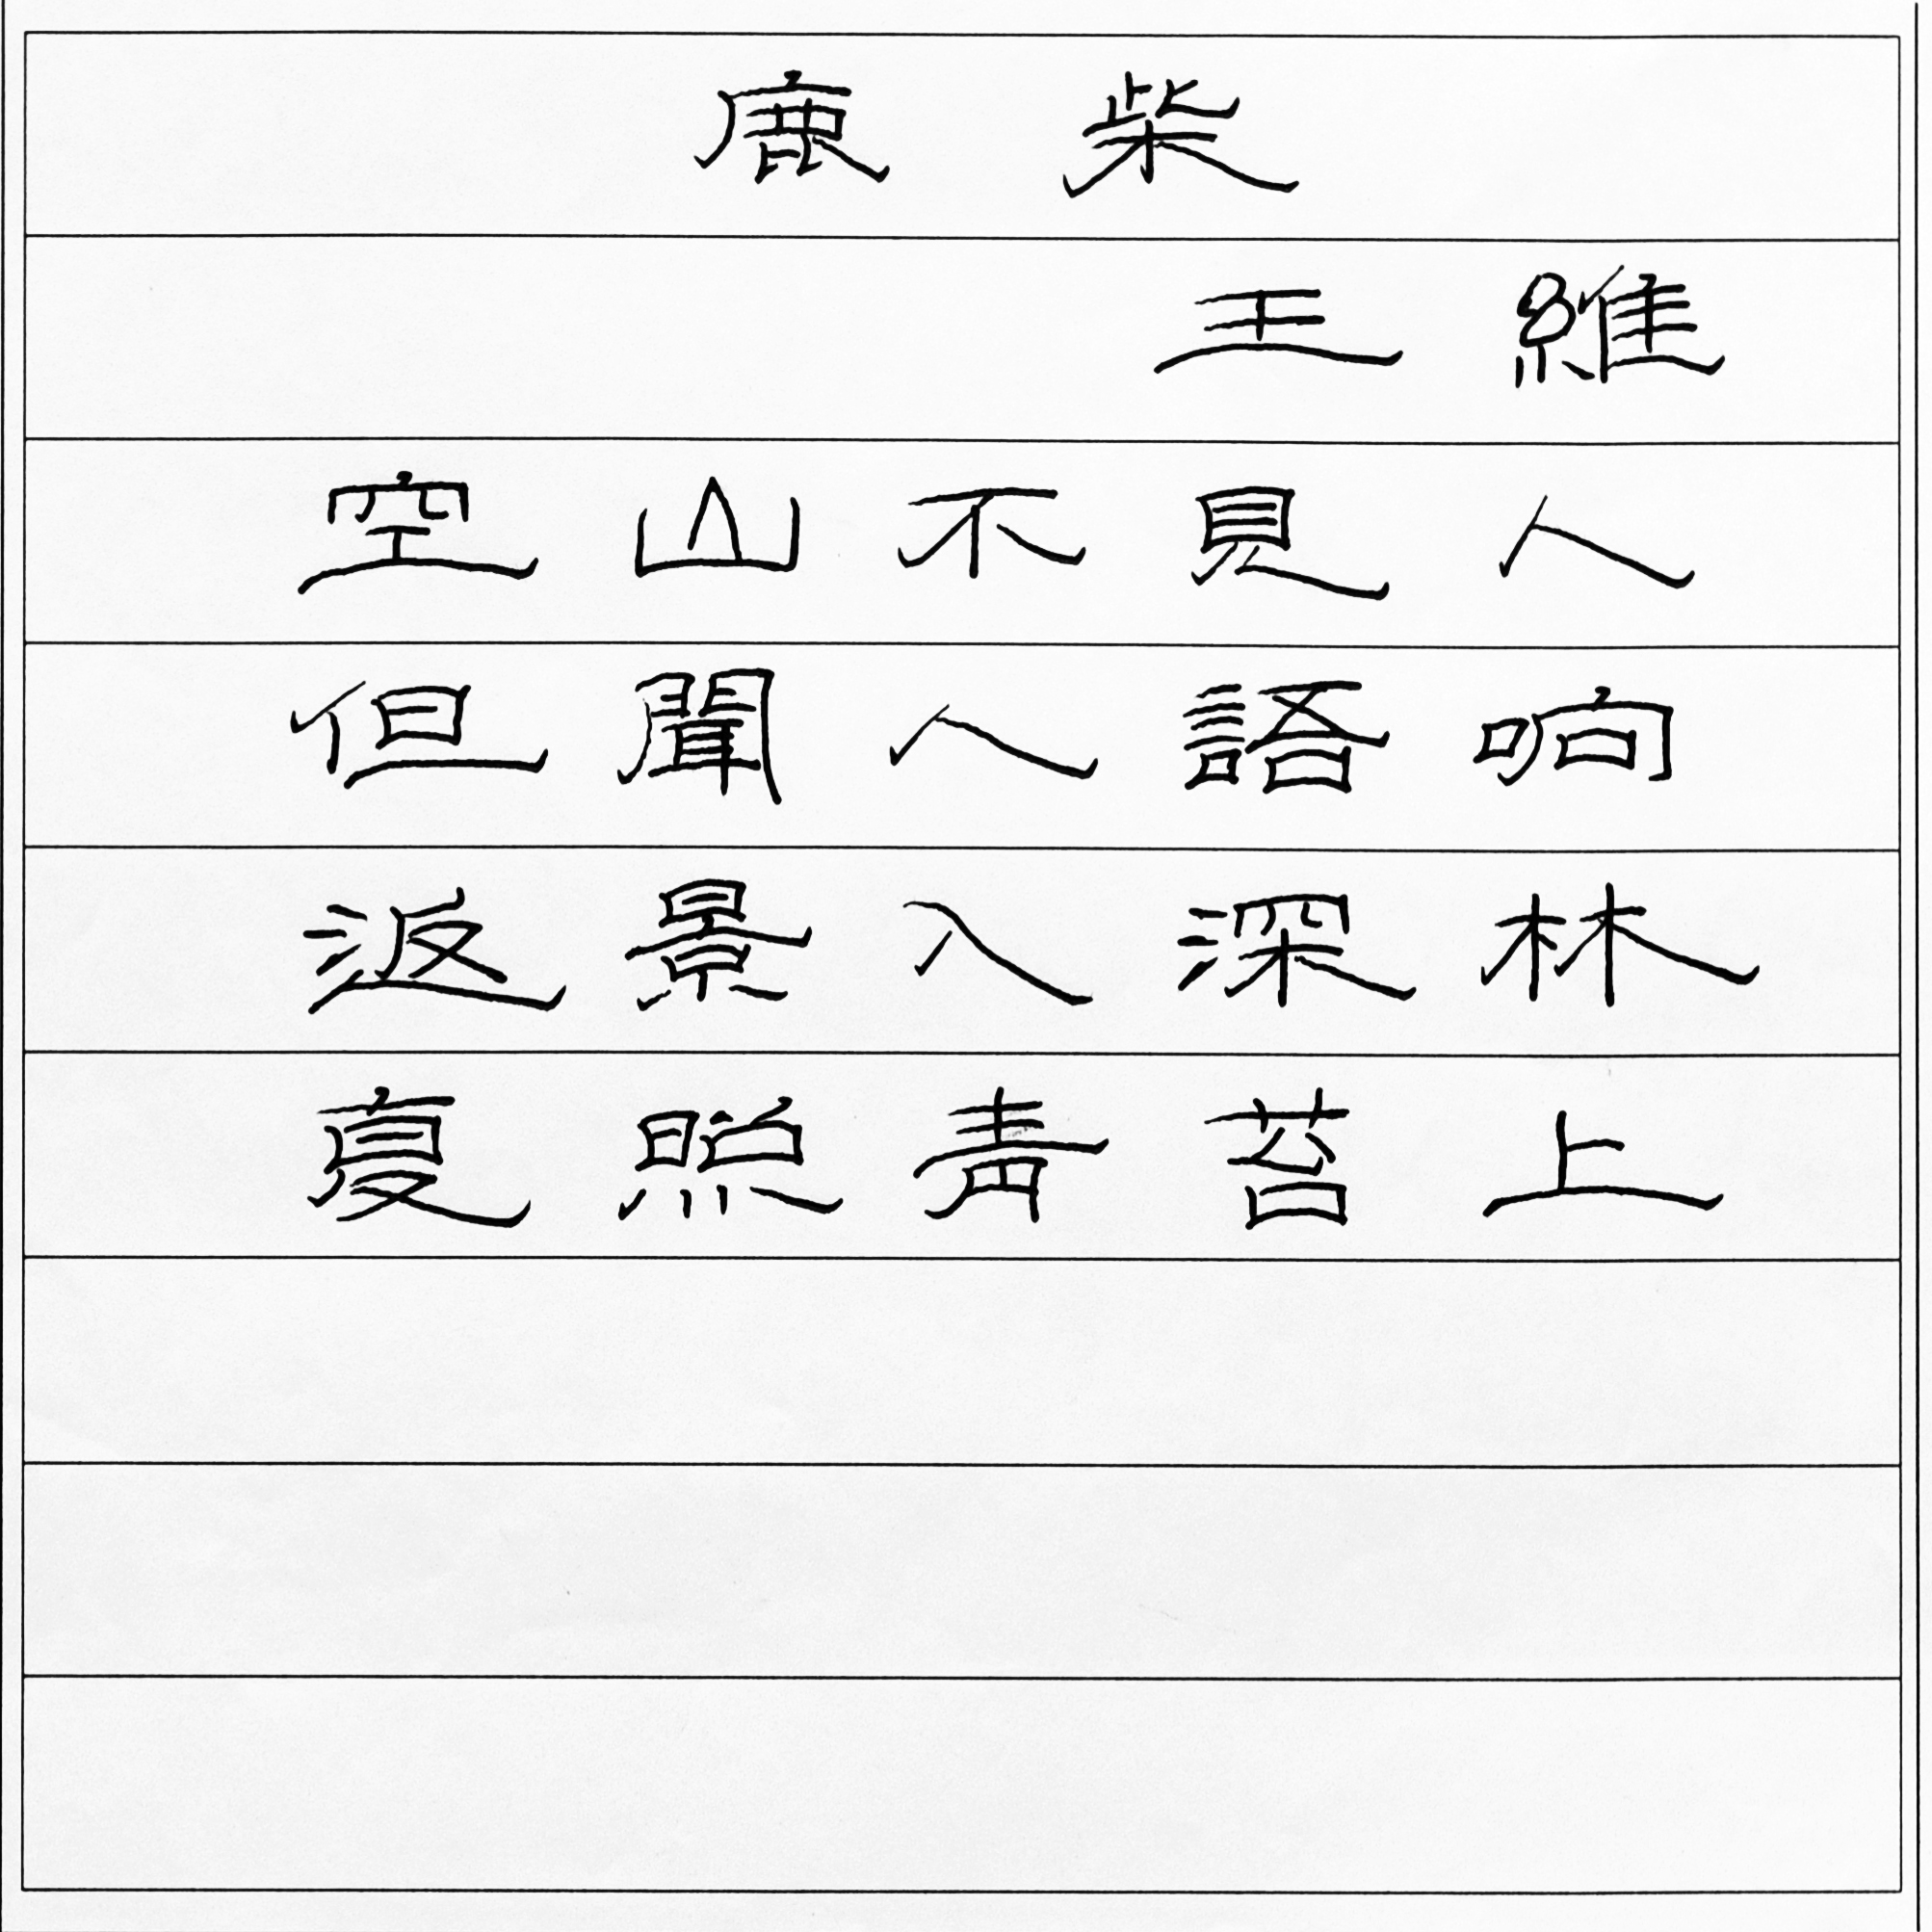 鹿柴
王維
空山不見人
但聞人語响
返景入深林
复照青苔上